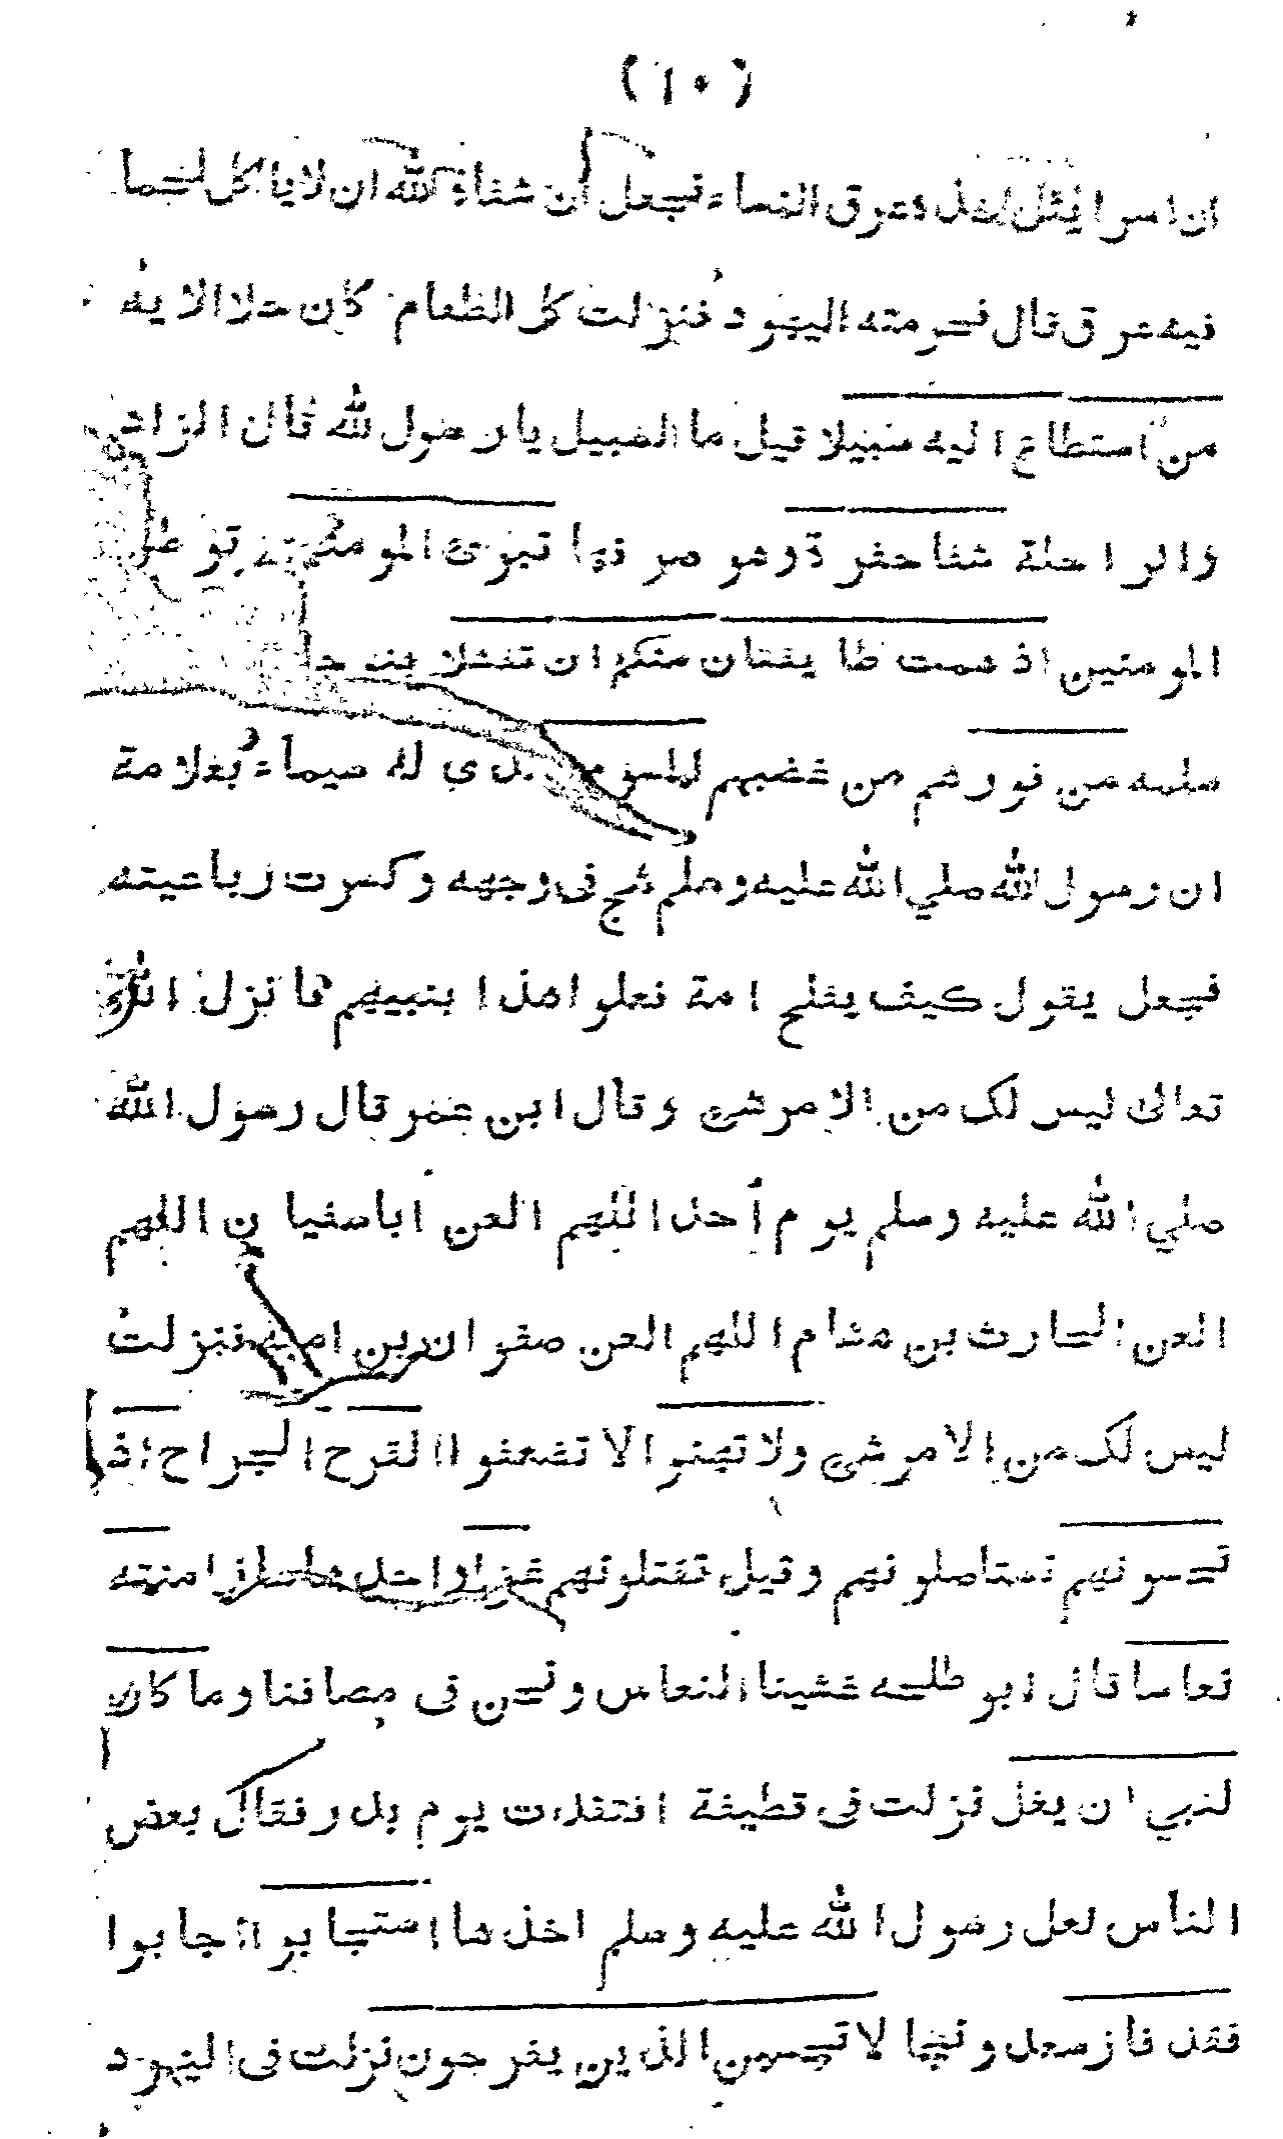 (١٠)
ان اسرائيل اخذه عرق النساء فجعل ان شفاه الله ان لا ياكل لحما
فيه عرق قال فحرمته اليهود فنزلت كل الطعام كان حلا الاية
من استطاع اليه سبيلا قيل ما السبيل يا رسول الله قال الزاد
والراحلة شفا حفرة وهو حرفها تبوئ المومنين توطن
المومنين اذ همت طايفتان منكم ان تفشلا بنو حا
سلمه من فورهم من غضبهم المسوم الذي له سيماء بعلامة
ان رسول الله صلي الله عليه وسلم شج فى وجهه وكسرت رباعيته
فجعل يقول كيف يفلح امة فعلوا هذا بنبيهم فانزل الله
تعالى ليس لك من الامر شئ وقال ابن عمر قال رسول الله
صلي الله عليه وسلم يوم أحد اللهم العن أبا سفيان اللهم
العن الحارث بن هشام اللهم العن صفوان بن امية فنزلت
ليس لك من الامر شئ ولا تهنوا لا تضعفوا القرح الجراح اذ
تحسونهم تستاصلونهم وقيل تقتلونهم غزا واحد امنة
نعاسا قال ابو طلحه غشينا النعاس ونحن فى مصافنا وما كان
لنبي ان يغل نزلت فى قطيفة افتقدت يوم بدر فقال بعض
الناس لعل رسول الله عليه وسلم اخذها استجابوا اجابوا
فقد فاز سعد ونجا لا تحسبن الذين يفرحون نزلت فى اليهود